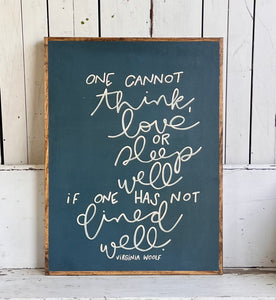 ONE CANNOT
think,
love
OR
sleep
well
iF ONE HAS NOT
dined
well.
VIRGINIA WOOLF